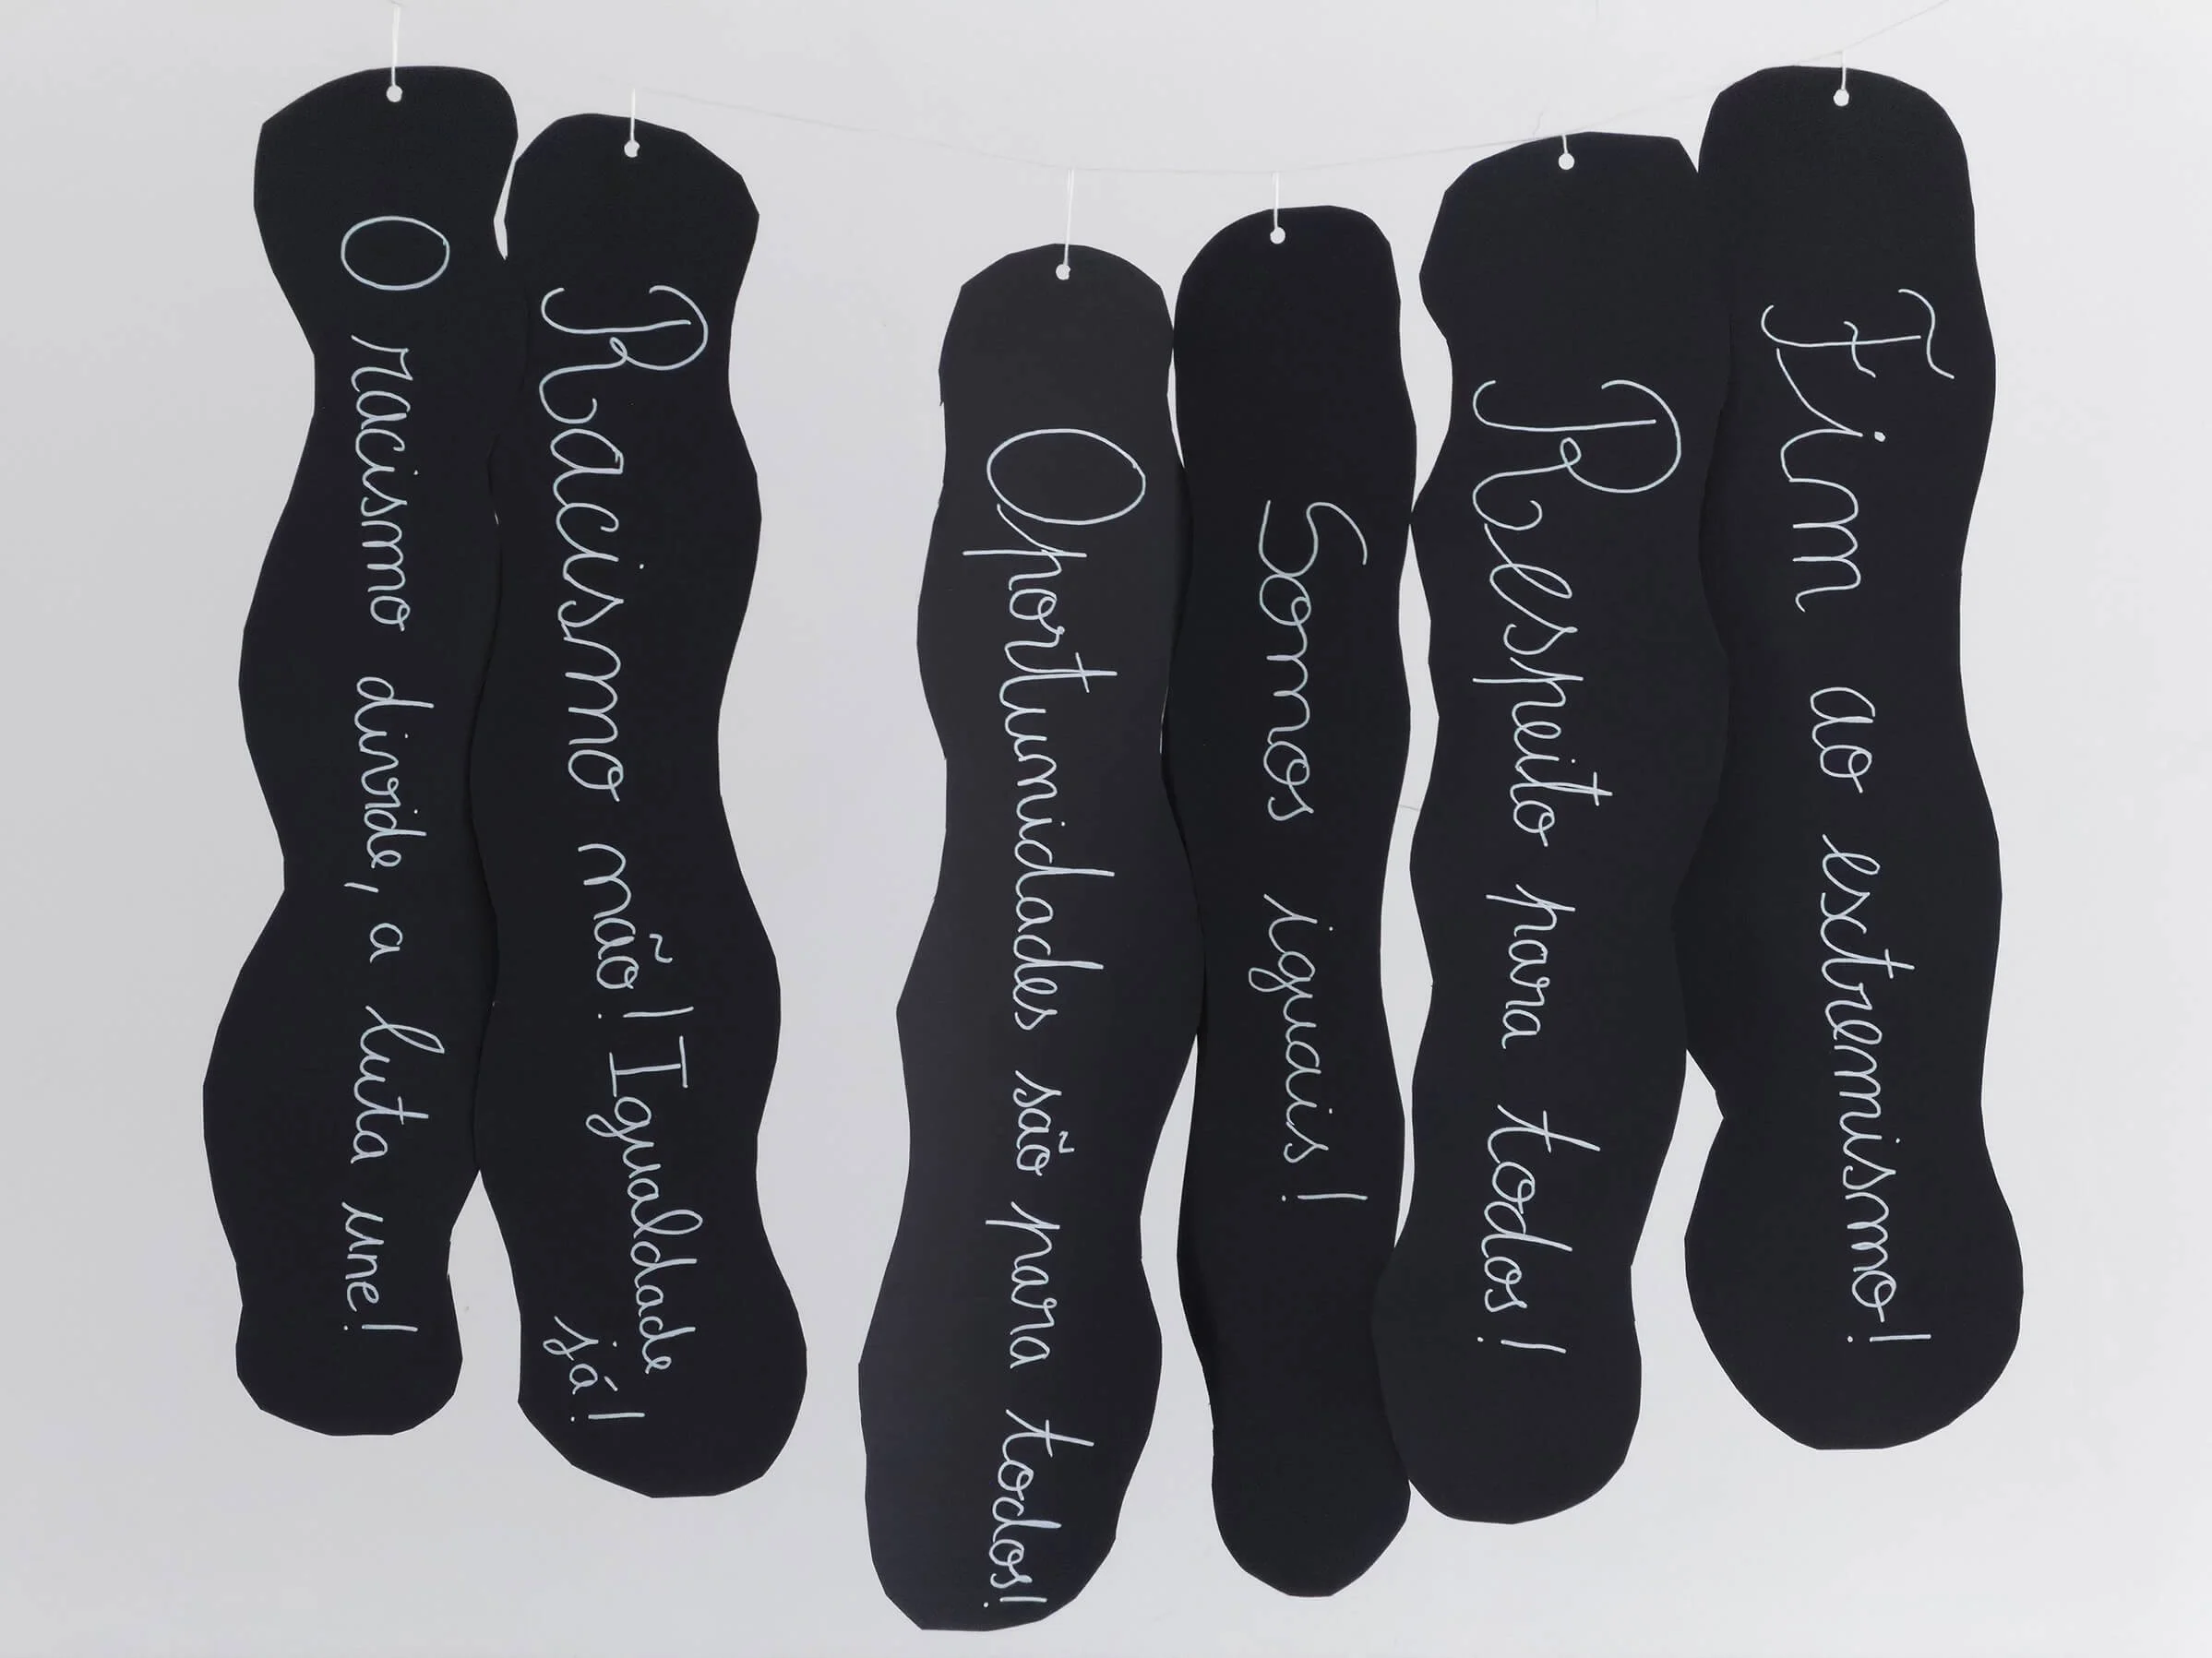 O racismo divide, a luta une!
Racismo não! Igualdade
já!
Oportunidades são para todos!
Somos iguais!
Respeito para todos!
Fim ao estremismo!